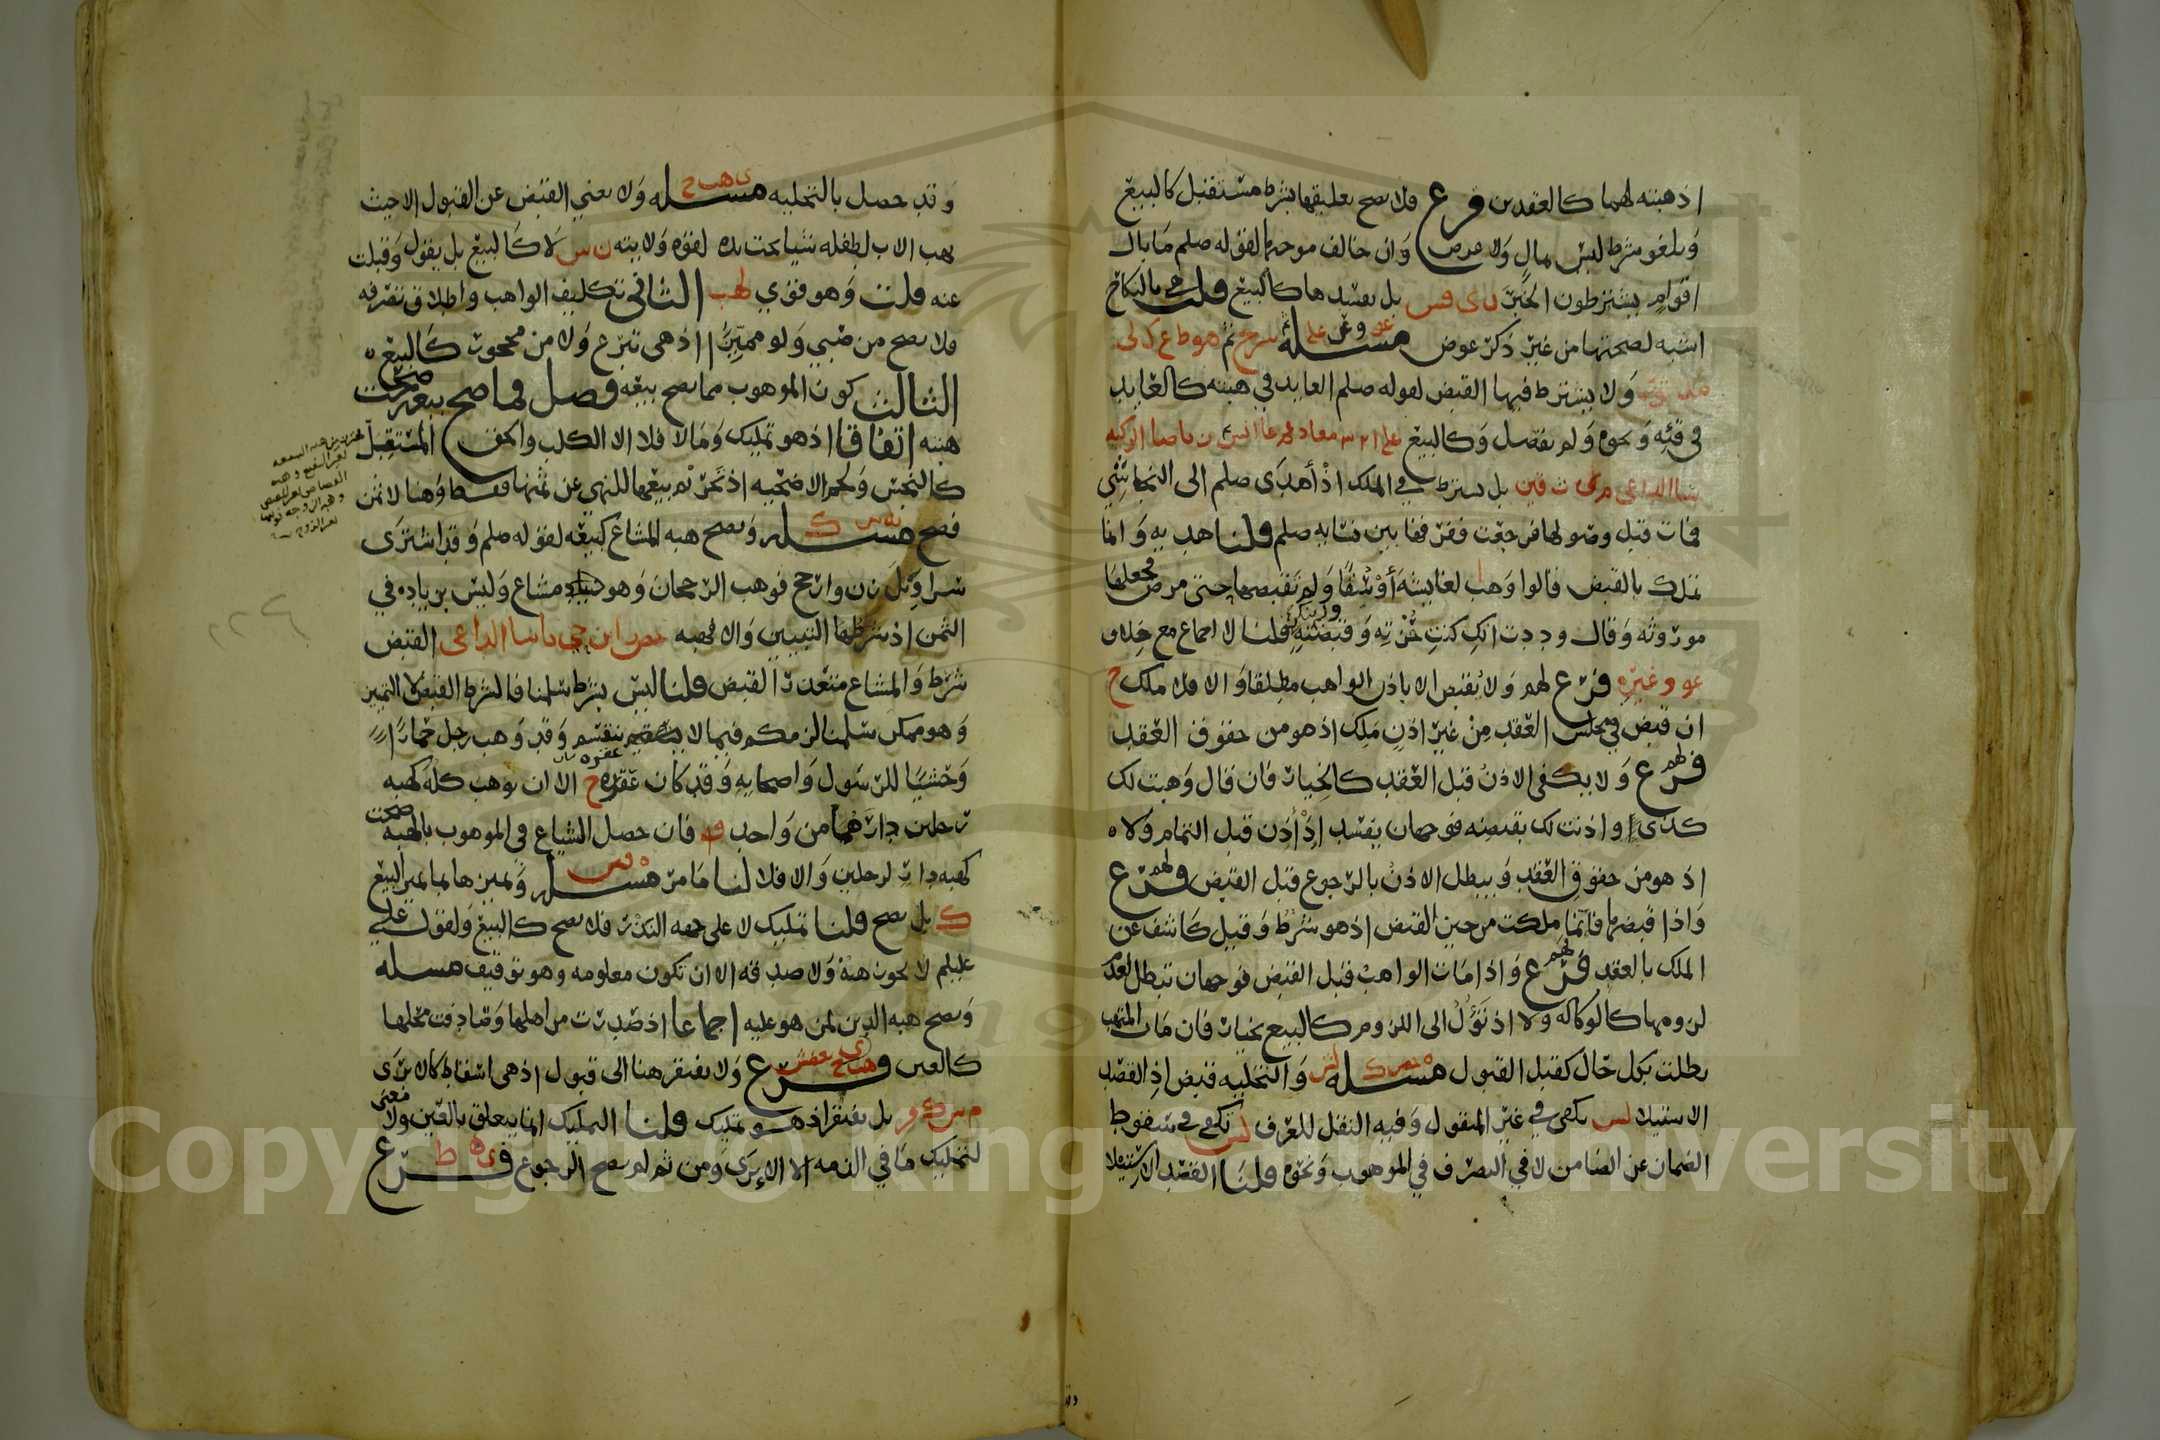 اذ هبته لهما كالعقدين فرع فلا يصح تعليقها بشرط مستقبل كالبيع
ويلغو شرط ليس بمال ولا عوض وان خالف موجبها لقوله صلعم ما بال
اقوام يشترطون الخبر بل يفسدها كالبيع قلت هي بالنكاح
اشبه لصحتها من غير ذكر عوض مسله
ولا يشترط فيها القبض لقوله صلعم العايد في هبته كالعايد
في قيئه ونحوه ولم يفصل وكالبيع
بل يشترط في الملك اذ أهدى صلعم الى النجاشي
فمات قبل وصولها فرجعت ففرقها بين نسايه صلعم قلنا هديه وانما
تملك بالقبض قالوا وهب لعايشة أوسقا ولم تقبضها حتى مرض فجعلها
موروثه وقال وددت انك كنت حزتيه وقبضتيه قلنا لا اجماع مع خلاف
عو وغيره فرع لهم ولا يقبض الا باذن الواهب مطلقا والا فلا ملك ح
ان قبض في مجلس العقد من غير اذن ملك اذ هو من حقوق العقد
فرع لهم ولا يكفي الاذن قبل العقد كالخيار فان قال وهبت لك
كذى واذنت لك بقبضه فوجهان يفسد اذ أذن قبل التمام ولا
اذ هو من حقوق العقد ويبطل الاذن بالرجوع قبل القبض فرع لهم
واذا قبضها فانما ملكت من حين القبض اذ هو شرط وقيل كاشف عن
الملك بالعقد فرع لهم واذا مات الواهب قبل القبض فوجهان تبطل لعدم
لزومها كالوكاله ولا اذ تؤل الى اللزوم كالبيع بخيار فان مات المتهب
بطلت بكل حال كقبل القبول مسله والتخليه قبض اذ القصد
الاستيلا يكفي في غير المنقول وفيه النقل للعرف تكفي في سقوط
الضمان عن الضامن لا في التصرف في الموهوب ونحوه قلنا القصد الاستيلا
وقد حصل بالتخليه مسله ولا يغني القبض عن القبول الا حيث
يهب الاب لطفله شيا تحت يده لقوة ولايته لا كالبيع بل يقول وقبلت
عنه قلت وهو قوي الثاني تكليف الواهب واطلاق تصرفه
فلا يصح من صبي ولو مميزا اذ هي تبرع ولا من محجور كالبيع
الثالث كون الموهوب مما يصح بيعه فصل فما صح بيعه صحت
هبته اتفاقا اذ هو تمليك وما لا فلا الا الكلب والحق المستقبل
كالنجس ولحم الاضحيه اذ تحريم بيعهما للنهي عن ثمنها فقط وهنا لا ثمن
فصح مسله وتصح هبه المشاع كبيعه لقوله صلعم وقد اشترى
سراويل زن وارجح فوهب الرجحان وهو مشاع وليس بزياده في
الثمن اذ شرطها التبيين والا فهبه القبض
شرط والمشاع متعذر القبض قلنا ليس بشرط سلمنا فالشرط القبض لا التميز
وهو ممكن سلمنا لزمكم فيما لا ينقسم وقد وهب رجل حمارا
وحشيا للرسول واصحابه وقد كان عقره ح الا ان يوهب كله كهبه
رجلين دارهما من واحد فان حصل الشياع في الموهوب بالهبه صحت
كهبه دار لرجلين والا فلا لنا ما مر مسله وتميزها بما يميز البيع
ك بل يصح قلنا تمليك لا على جهه النذر فلا يصح كالبيع ولقول علي
عليلم لا تجوز هبة ولا صدقه الا ان تكون معلومه وهو توقيف مسله
وتصح هبه الدين لمن هو عليه اجماعا اذ صدرت من اهلها وصادفت محلها
كالعين فرع ولا يفتقر هنا الى قبول اذ هي اسقاط كالابرى
بل يفتقر اذ هو تمليك قلنا التمليك انما يتعلق بالعين ولا معنى
لتمليك ما في الذمه الا الابرى ومن ثم لم يصح الرجوع فرع
Copyright © King Saud University